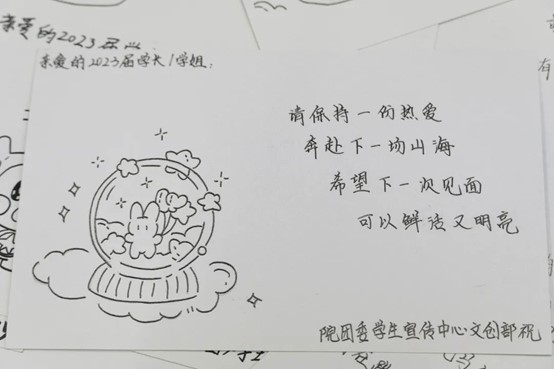 亲爱的2023届
亲爱的2023届学长/学姐：
请保持一份热爱
奔赴下一场山海
希望下一次见面
可以鲜活又明亮
院团委学生宣传中心文创部祝
有